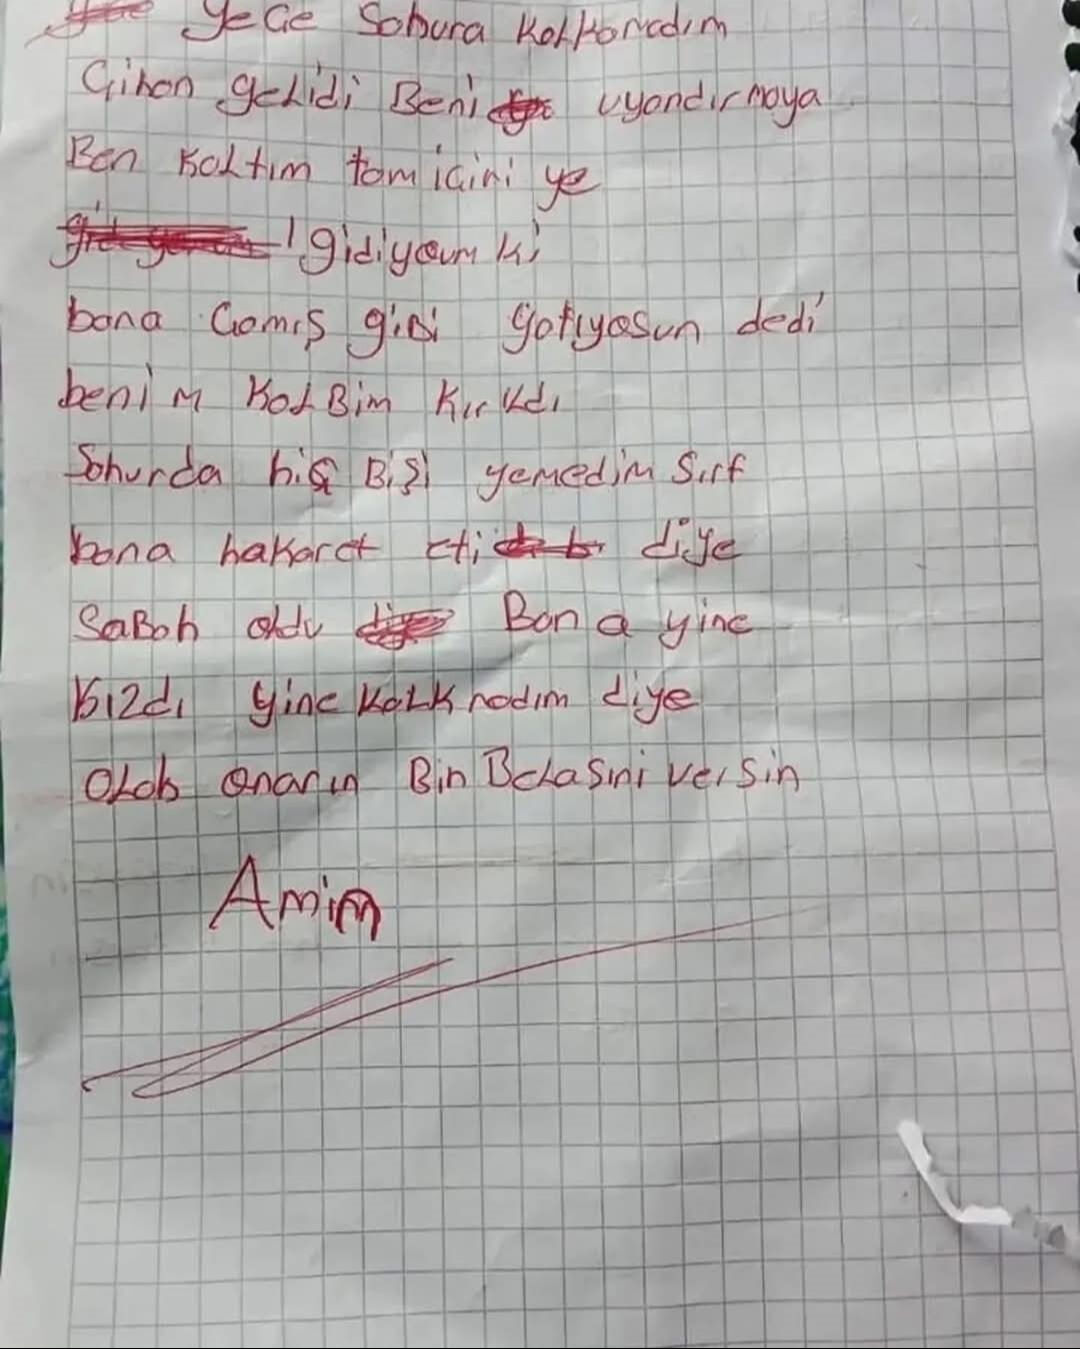 yeGe Sohura KalKamadım
Cihan geLidi Beni uyandırmaya
Ben KaLtım tam icini ye
gidiyoum ki
bana Camış giBi yatıyosun dedi
benim KaLBim Kırkdı
Sohurda hiç Bişi yemedim Sırf
bana hakaret eti diye
SaBah oldu Bana yine
Kızdı yine KaLkmadım diye
OLah onarın Bin BeLasini versin
Amin